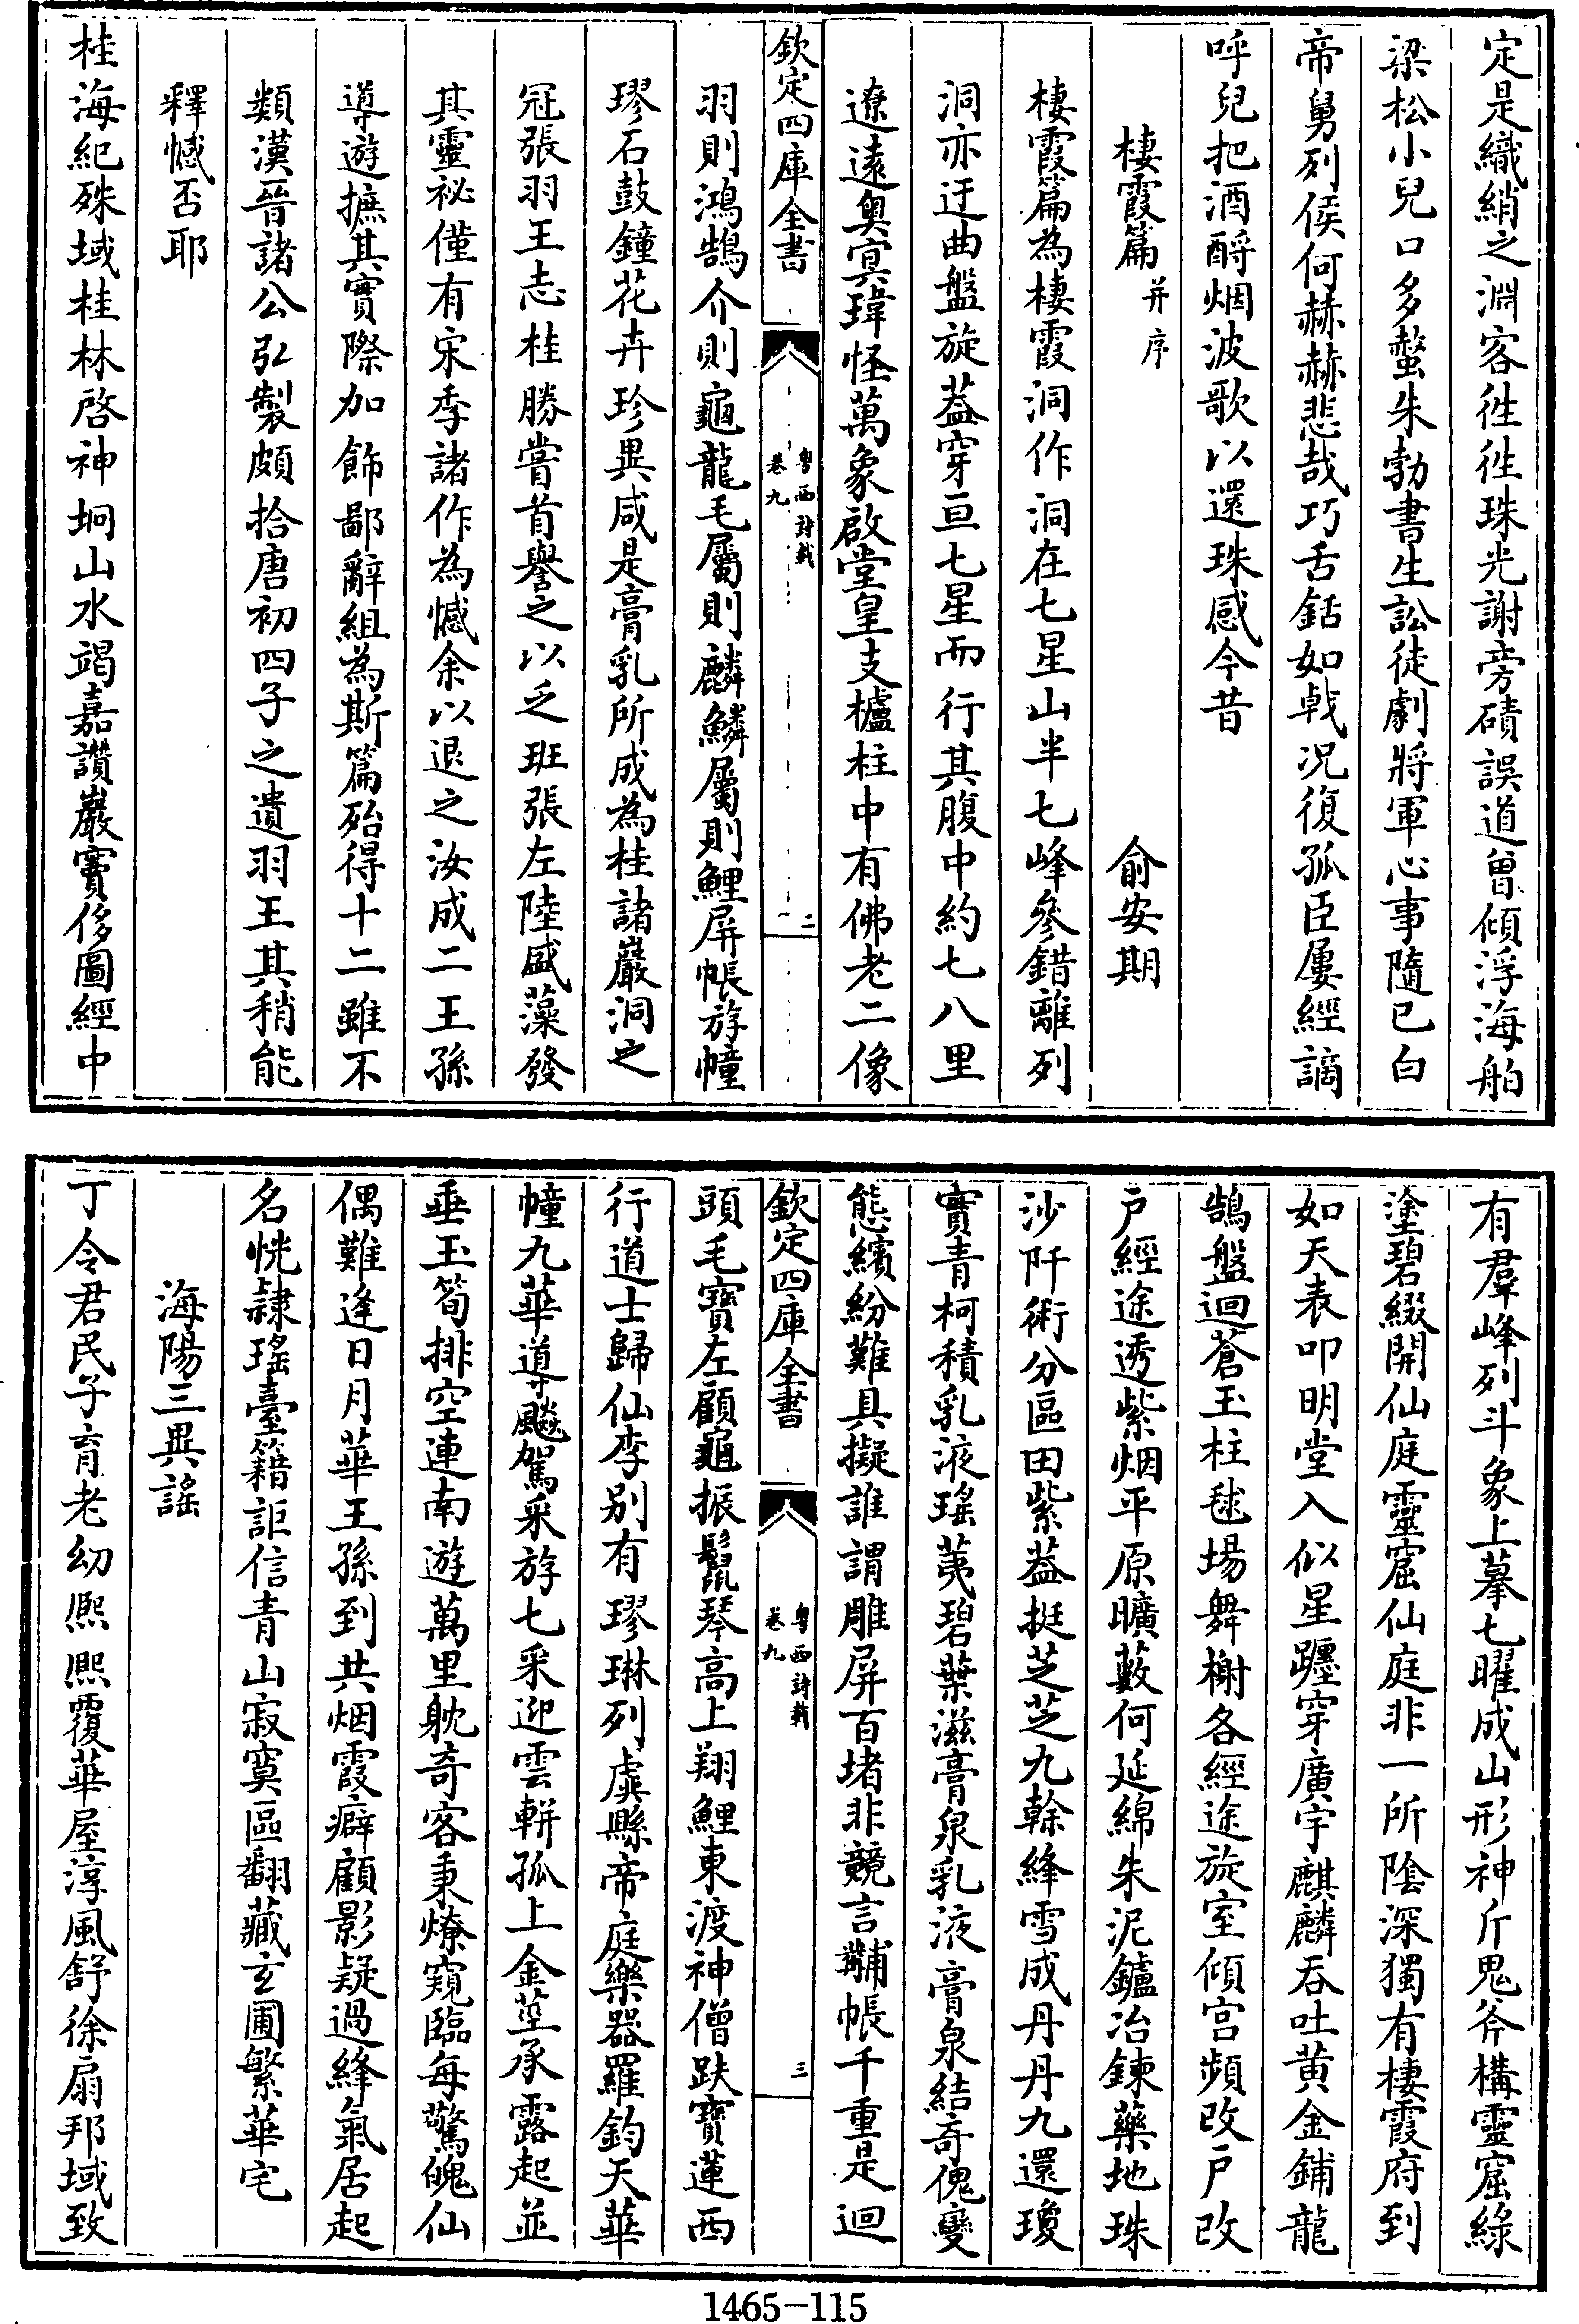 定是織綃之淵客徃徃珠光謝旁磧誤道曽傾浮海舶
梁松小兒口多螫朱勃書生訟徒劇將軍心事隨已白
帝舅列侯何赫赫悲哉巧舌銛如㦸况復孤臣屢經謫
呼兒把酒酹烟波歌以還珠感今昔
棲霞篇并序 俞安期
棲霞篇為棲霞洞作洞在七星山半七峰參錯離列
洞亦迂曲盤旋葢穿亘七星而行其腹中約七八里
遼逺奥㝠瑋怪萬象啟堂皇支櫨柱中有佛老二像
欽定四庫全書
粤西詩載
卷九
二
羽則鴻鵠介則龜龍毛屬則麟鱗屬則鯉屏帳斿幢
璆石鼓鐘花卉珍異咸是膏乳所成為桂諸巖洞之
冠張羽王志桂勝嘗首譽之以乏班張左陸盛藻發
其靈祕僅有宋季諸作為憾余以退之汝成二王孫
導遊摭其實際加飾鄙辭組為斯篇殆得十二雖不
類漢晉諸公弘製頗拾唐初四子之遺羽王其稍能
釋憾否耶
桂海紀殊域桂林啓神坰山水竭嘉讚巖竇侈圖經中
有羣峰列斗象上摹七曜成山形神斤鬼斧構靈窟綠
塗碧綴開仙庭靈窟仙庭非一所陰深獨有棲霞府到
如天表叩明堂入似星躔穿廣宇麒麟吞吐黄金鋪龍
鵠盤迴蒼玉柱毬場舞榭各經途旋室傾宫頻改户改
户經途透紫烟平原曠藪何延綿朱泥鑪冶鍊藥地珠
沙阡術分區田紫葢挺芝芝九榦絳雪成丹丹九還瓊
實青柯積乳液瑤荑碧葉滋膏泉乳液膏泉結奇傀變
態繽紛難具擬誰謂雕屏百堵非競言黼帳千重是迴
欽定四庫全書
粤西詩載
卷九
三
頭毛寳左顧龜振鬛琴高上翔鯉東渡神僧趺寳蓮西
行道士歸仙李别有璆琳列虡縣帝庭樂器羅鈞天華
幢九華導飈駕采斿七采迎雲輧孤上金莖承露起並
垂玉筍排空連南遊萬里躭奇客秉燎窺臨每驚魄仙
偶難逢日月華王孫到共烟霞癖顧影疑過絳氣居起
名恍隷瑤臺籍詎信青山寂寞區翻藏玄圃繁華宅
海陽三異謡
丁令君民子育老幼熈熈覆華屋淳風舒徐扇邦域致
1465-115